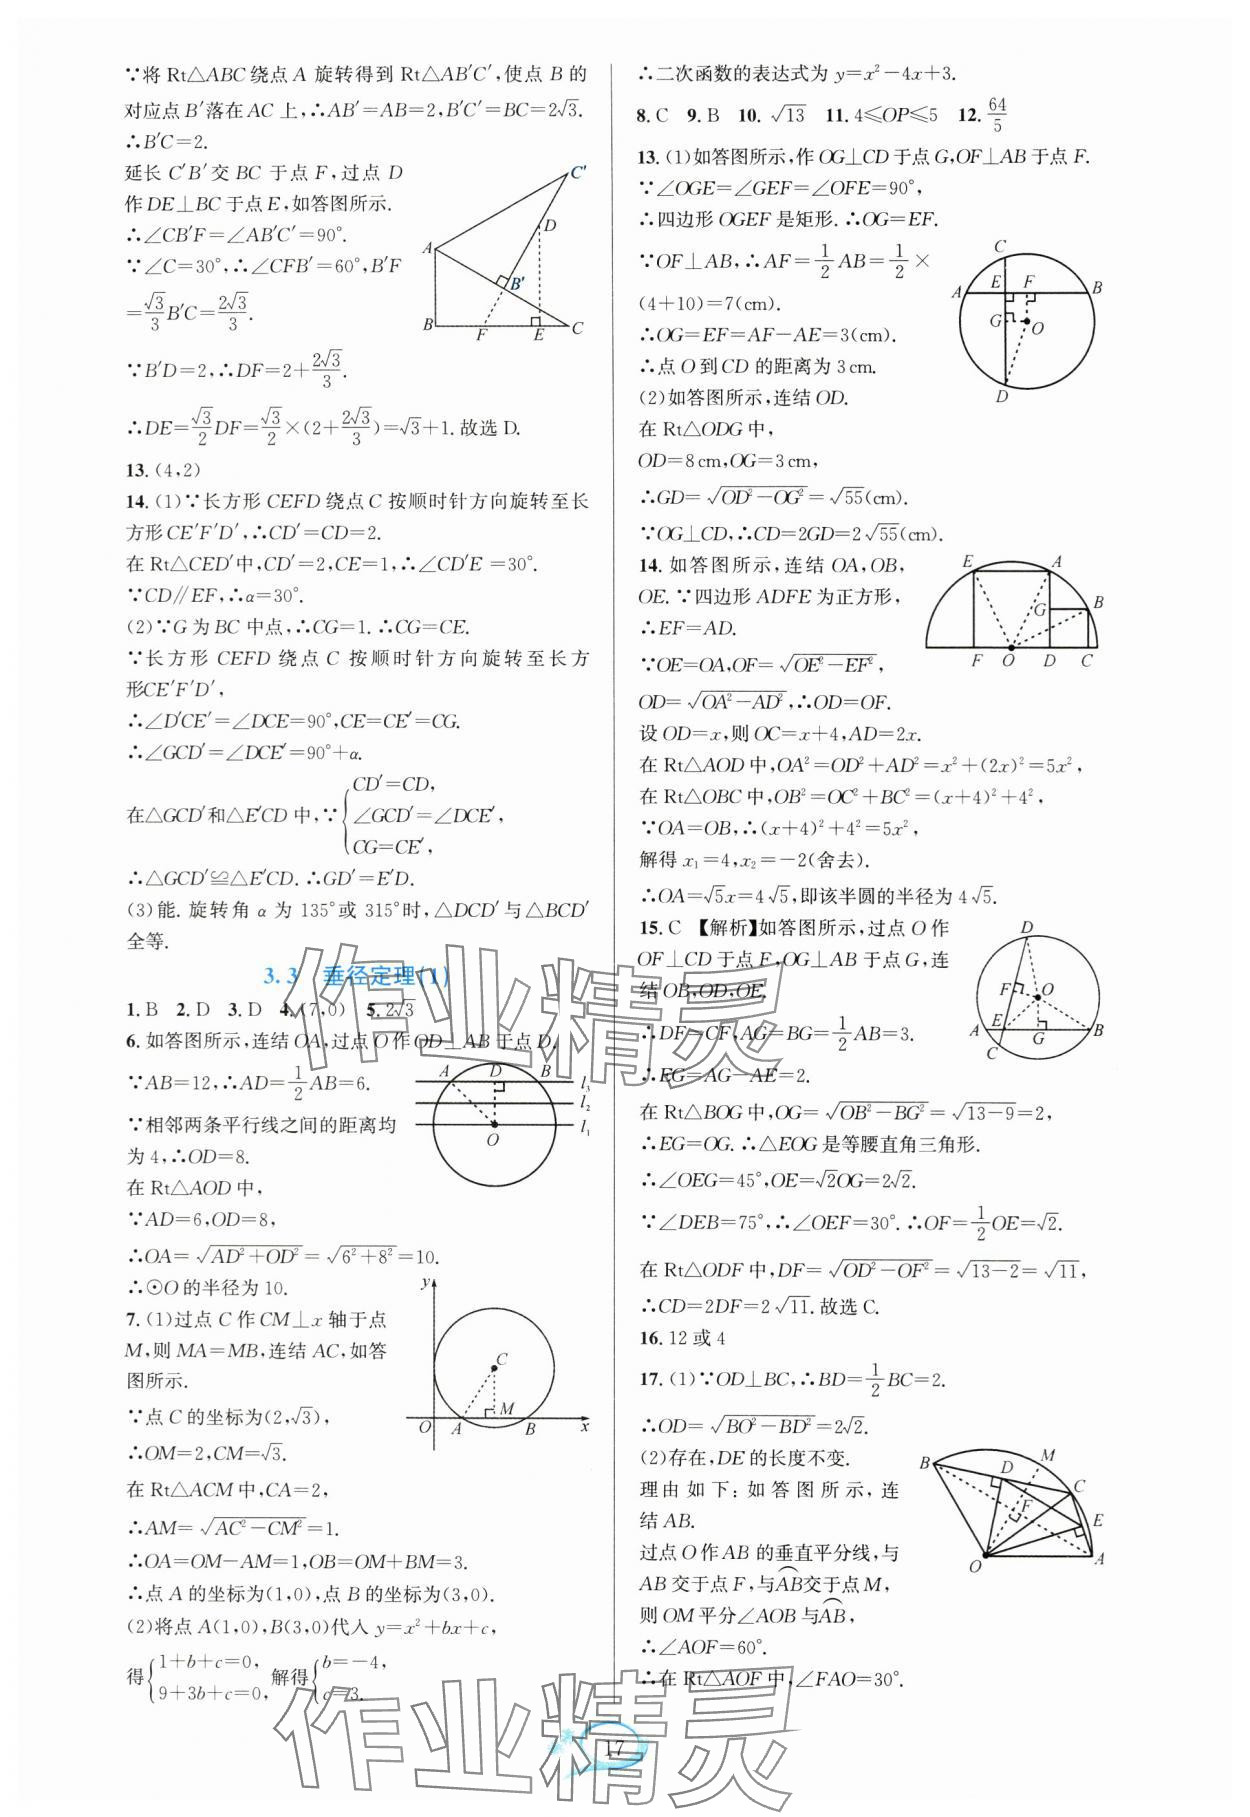 ∵将 Rt△ABC 绕点 A 旋转得到 Rt△AB′C′,使点 B 的
对应点 B′落在 AC 上,∴AB′=AB=2,B′C′=BC=2√3.
∴B′C=2.
延长 C′B′交 BC 于点 F,过点 D
作 DE⊥BC 于点 E,如答图所示.
∴∠CB′F=∠AB′C′=90°.
∵∠C=30°,∴∠CFB′=60°,B′F
=√3/3 B′C=2√3/3.
∵B′D=2,∴DF=2+2√3/3.
∴DE=√3/2 DF=√3/2×(2+2√3/3)=√3+1.故选 D.
A
B
C
C′
D
B′
F
E
13.(4,2)
14.(1)∵长方形 CEFD 绕点 C 按顺时针方向旋转至长
方形 CE′F′D′,∴CD′=CD=2.
在 Rt△CED′中,CD′=2,CE=1,∴∠CD′E=30°.
∵CD∥EF,∴α=30°.
(2)∵G 为 BC 中点,∴CG=1.∴CG=CE.
∵长方形 CEFD 绕点 C 按顺时针方向旋转至长方
形CE′F′D′,
∴∠D′CE′=∠DCE=90°,CE=CE′=CG.
∴∠GCD′=∠DCE′=90°+α.
在△GCD′和△E′CD 中,∵{CD′=CD,
∠GCD′=∠DCE′,
CG=CE′,
∴△GCD′≌△E′CD.∴GD′=E′D.
(3)能.旋转角 α 为 135°或 315°时,△DCD′与△BCD′
全等.
3.3 垂径定理(1)
1.B 2.D 3.D 4.(7,0) 5.2√3
6.如答图所示,连结 OA,过点 O 作 OD⊥AB 于点 D.
∵AB=12,∴AD=1/2 AB=6.
∵相邻两条平行线之间的距离均
为 4,∴OD=8.
在 Rt△AOD 中,
∵AD=6,OD=8,
∴OA=√(AD²+OD²)=√(6²+8²)=10.
∴⊙O 的半径为 10.
A D B l₃
l₂
O l₁
7.(1)过点 C 作 CM⊥x 轴于点
M,则 MA=MB,连结 AC,如答
图所示.
∵点 C 的坐标为(2,√3),
∴OM=2,CM=√3.
在 Rt△ACM 中,CA=2,
∴AM=√(AC²−CM²)=1.
∴OA=OM−AM=1,OB=OM+BM=3.
∴点 A 的坐标为(1,0),点 B 的坐标为(3,0).
(2)将点 A(1,0),B(3,0)代入 y=x²+bx+c,
得{1+b+c=0, 解得{b=−4,
9+3b+c=0, c=3.
y
C
M
O A B x
∴二次函数的表达式为 y=x²−4x+3.
8.C 9.B 10.√13 11.4≤OP≤5 12.64/5
13.(1)如答图所示,作 OG⊥CD 于点 G,OF⊥AB 于点 F.
∵∠OGE=∠GEF=∠OFE=90°,
∴四边形 OGEF 是矩形.∴OG=EF.
∵OF⊥AB,∴AF=1/2 AB=1/2×
(4+10)=7(cm).
∴OG=EF=AF−AE=3(cm).
∴点 O 到 CD 的距离为 3 cm.
(2)如答图所示,连结 OD.
在 Rt△ODG 中,
OD=8 cm,OG=3 cm,
∴GD=√(OD²−OG²)=√55(cm).
∵OG⊥CD,∴CD=2GD=2√55(cm).
C
E F
A B
G O
D
14.如答图所示,连结 OA,OB,
OE.∵四边形 ADFE 为正方形,
∴EF=AD.
∵OE=OA,OF=√(OE²−EF²),
OD=√(OA²−AD²),∴OD=OF.
设 OD=x,则 OC=x+4,AD=2x.
在 Rt△AOD 中,OA²=OD²+AD²=x²+(2x)²=5x²,
在 Rt△OBC 中,OB²=OC²+BC²=(x+4)²+4²,
∵OA=OB,∴(x+4)²+4²=5x²,
解得 x₁=4,x₂=−2(舍去).
∴OA=√5x=4√5,即该半圆的半径为 4√5.
E A
G B
F O D C
15.C 【解析】如答图所示,过点 O 作
OF⊥CD 于点 F,OG⊥AB 于点 G,连
结 OB,OD,OE.
∴DF=CF,AG=BG=1/2 AB=3.
∴EG=AG−AE=2.
在 Rt△BOG 中,OG=√(OB²−BG²)=√(13−9)=2,
∴EG=OG.∴△EOG 是等腰直角三角形.
∴∠OEG=45°,OE=√2OG=2√2.
∵∠DEB=75°,∴∠OEF=30°.∴OF=1/2 OE=√2.
在 Rt△ODF 中,DF=√(OD²−OF²)=√(13−2)=√11,
∴CD=2DF=2√11.故选 C.
D
F O
E
A G B
C
16.12 或 4
17.(1)∵OD⊥BC,∴BD=1/2 BC=2.
∴OD=√(BO²−BD²)=2√2.
(2)存在,DE 的长度不变.
理由如下:如答图所示,连
结 AB.
过点 O 作 AB 的垂直平分线,与
AB 交于点 F,与AB⌒交于点 M,
则 OM 平分∠AOB 与AB⌒,
∴∠AOF=60°.
∴在 Rt△AOF 中,∠FAO=30°.
M
B D C
F E
O A
作业精灵
作业精灵
17